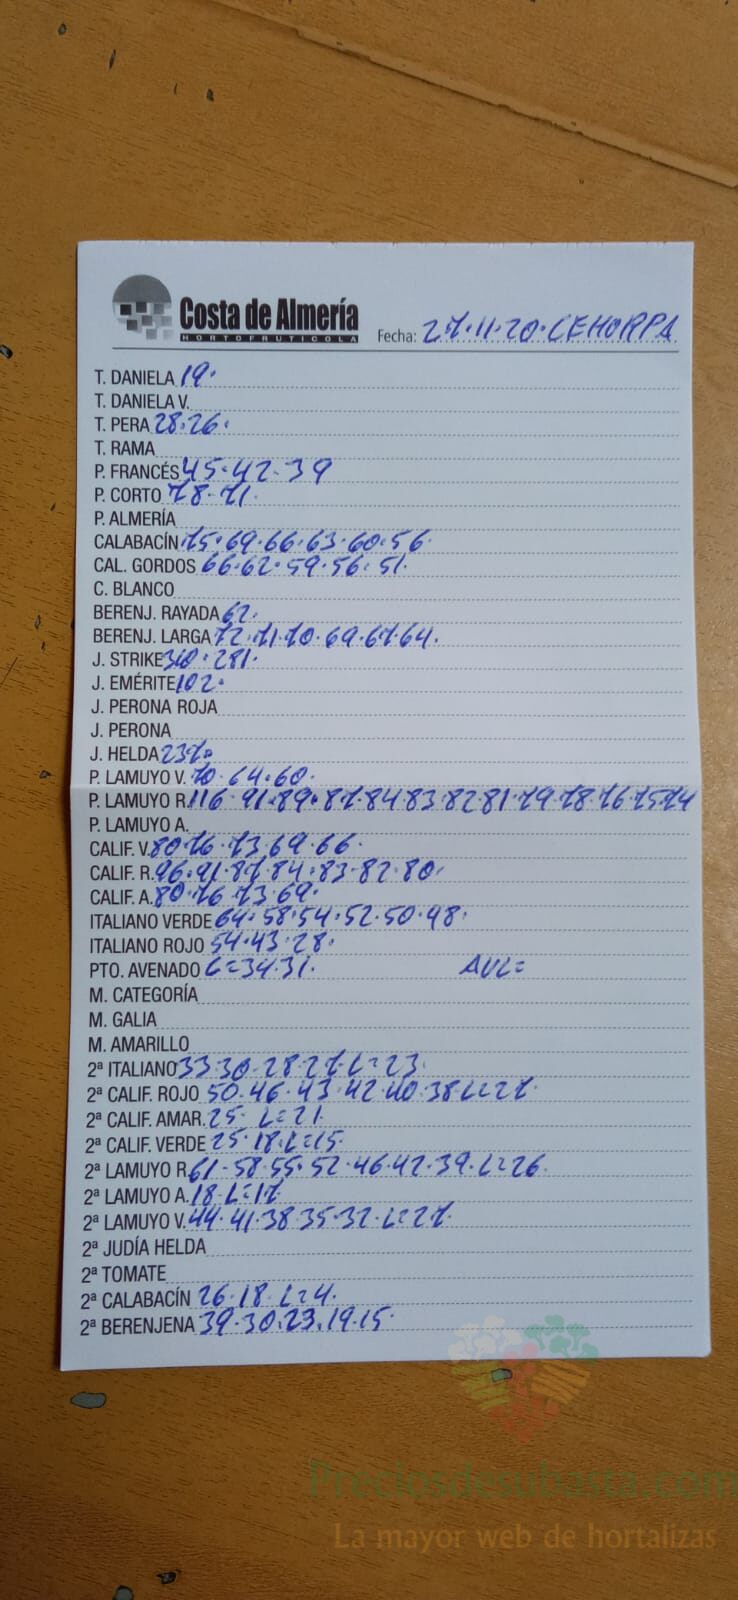 Costa de Almería
HORTOFRUTICOLA
Fecha: 27.11.20.CEHORPA
T. DANIELA 19.
T. DANIELA V.
T. PERA 28.26.
T. RAMA
P. FRANCÉS 45.42.39
P. CORTO 78.71.
P. ALMERÍA
CALABACÍN 75.69.66.63.60.56.
CAL. GORDOS 66.62.59.56.51.
C. BLANCO
BERENJ. RAYADA 62.
BERENJ. LARGA 72.71.70.69.67.64.
J. STRIKE 310.281.
J. EMÉRITE 102.
J. PERONA ROJA
J. PERONA
J. HELDA 237.
P. LAMUYO V. 70.64.60.
P. LAMUYO R. 116.91.89.87.84.83.82.81.79.78.76.75.74
P. LAMUYO A.
CALIF. V. 80.76.73.69.66.
CALIF. R. 96.91.87.84.83.82.80.
CALIF. A. 80.76.73.69.
ITALIANO VERDE 64.58.54.52.50.48.
ITALIANO ROJO 54.43.28.
PTO. AVENADO G=34.31. AVL=
M. CATEGORÍA
M. GALIA
M. AMARILLO
2ª ITALIANO 33.30.28.27.L=23.
2ª CALIF. ROJO 50.46.43.42.40.38.L=27.
2ª CALIF. AMAR. 25. L=21.
2ª CALIF. VERDE 25.18.L=15.
2ª LAMUYO R. 61.58.55.52.46.42.39.L=26.
2ª LAMUYO A. 18.L=17.
2ª LAMUYO V. 44.41.38.35.32.L=27.
2ª JUDÍA HELDA
2ª TOMATE
2ª CALABACÍN 26.18.L=4.
2ª BERENJENA 39.30.23.19.15.
Preciosdesubasta.com
La mayor web de hortalizas